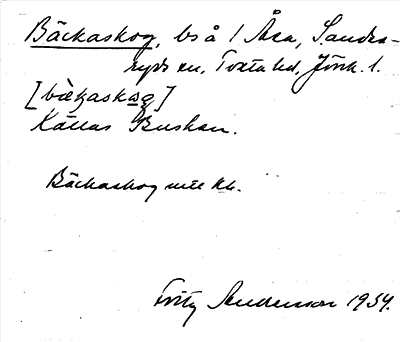 Bäckaskog, bs å 1 Åsa, Sands-
ryds sn, Tveta hd, Jönk. l.
Kallas Buskan.
Bäckaskog
Fritz Andersson 1934.